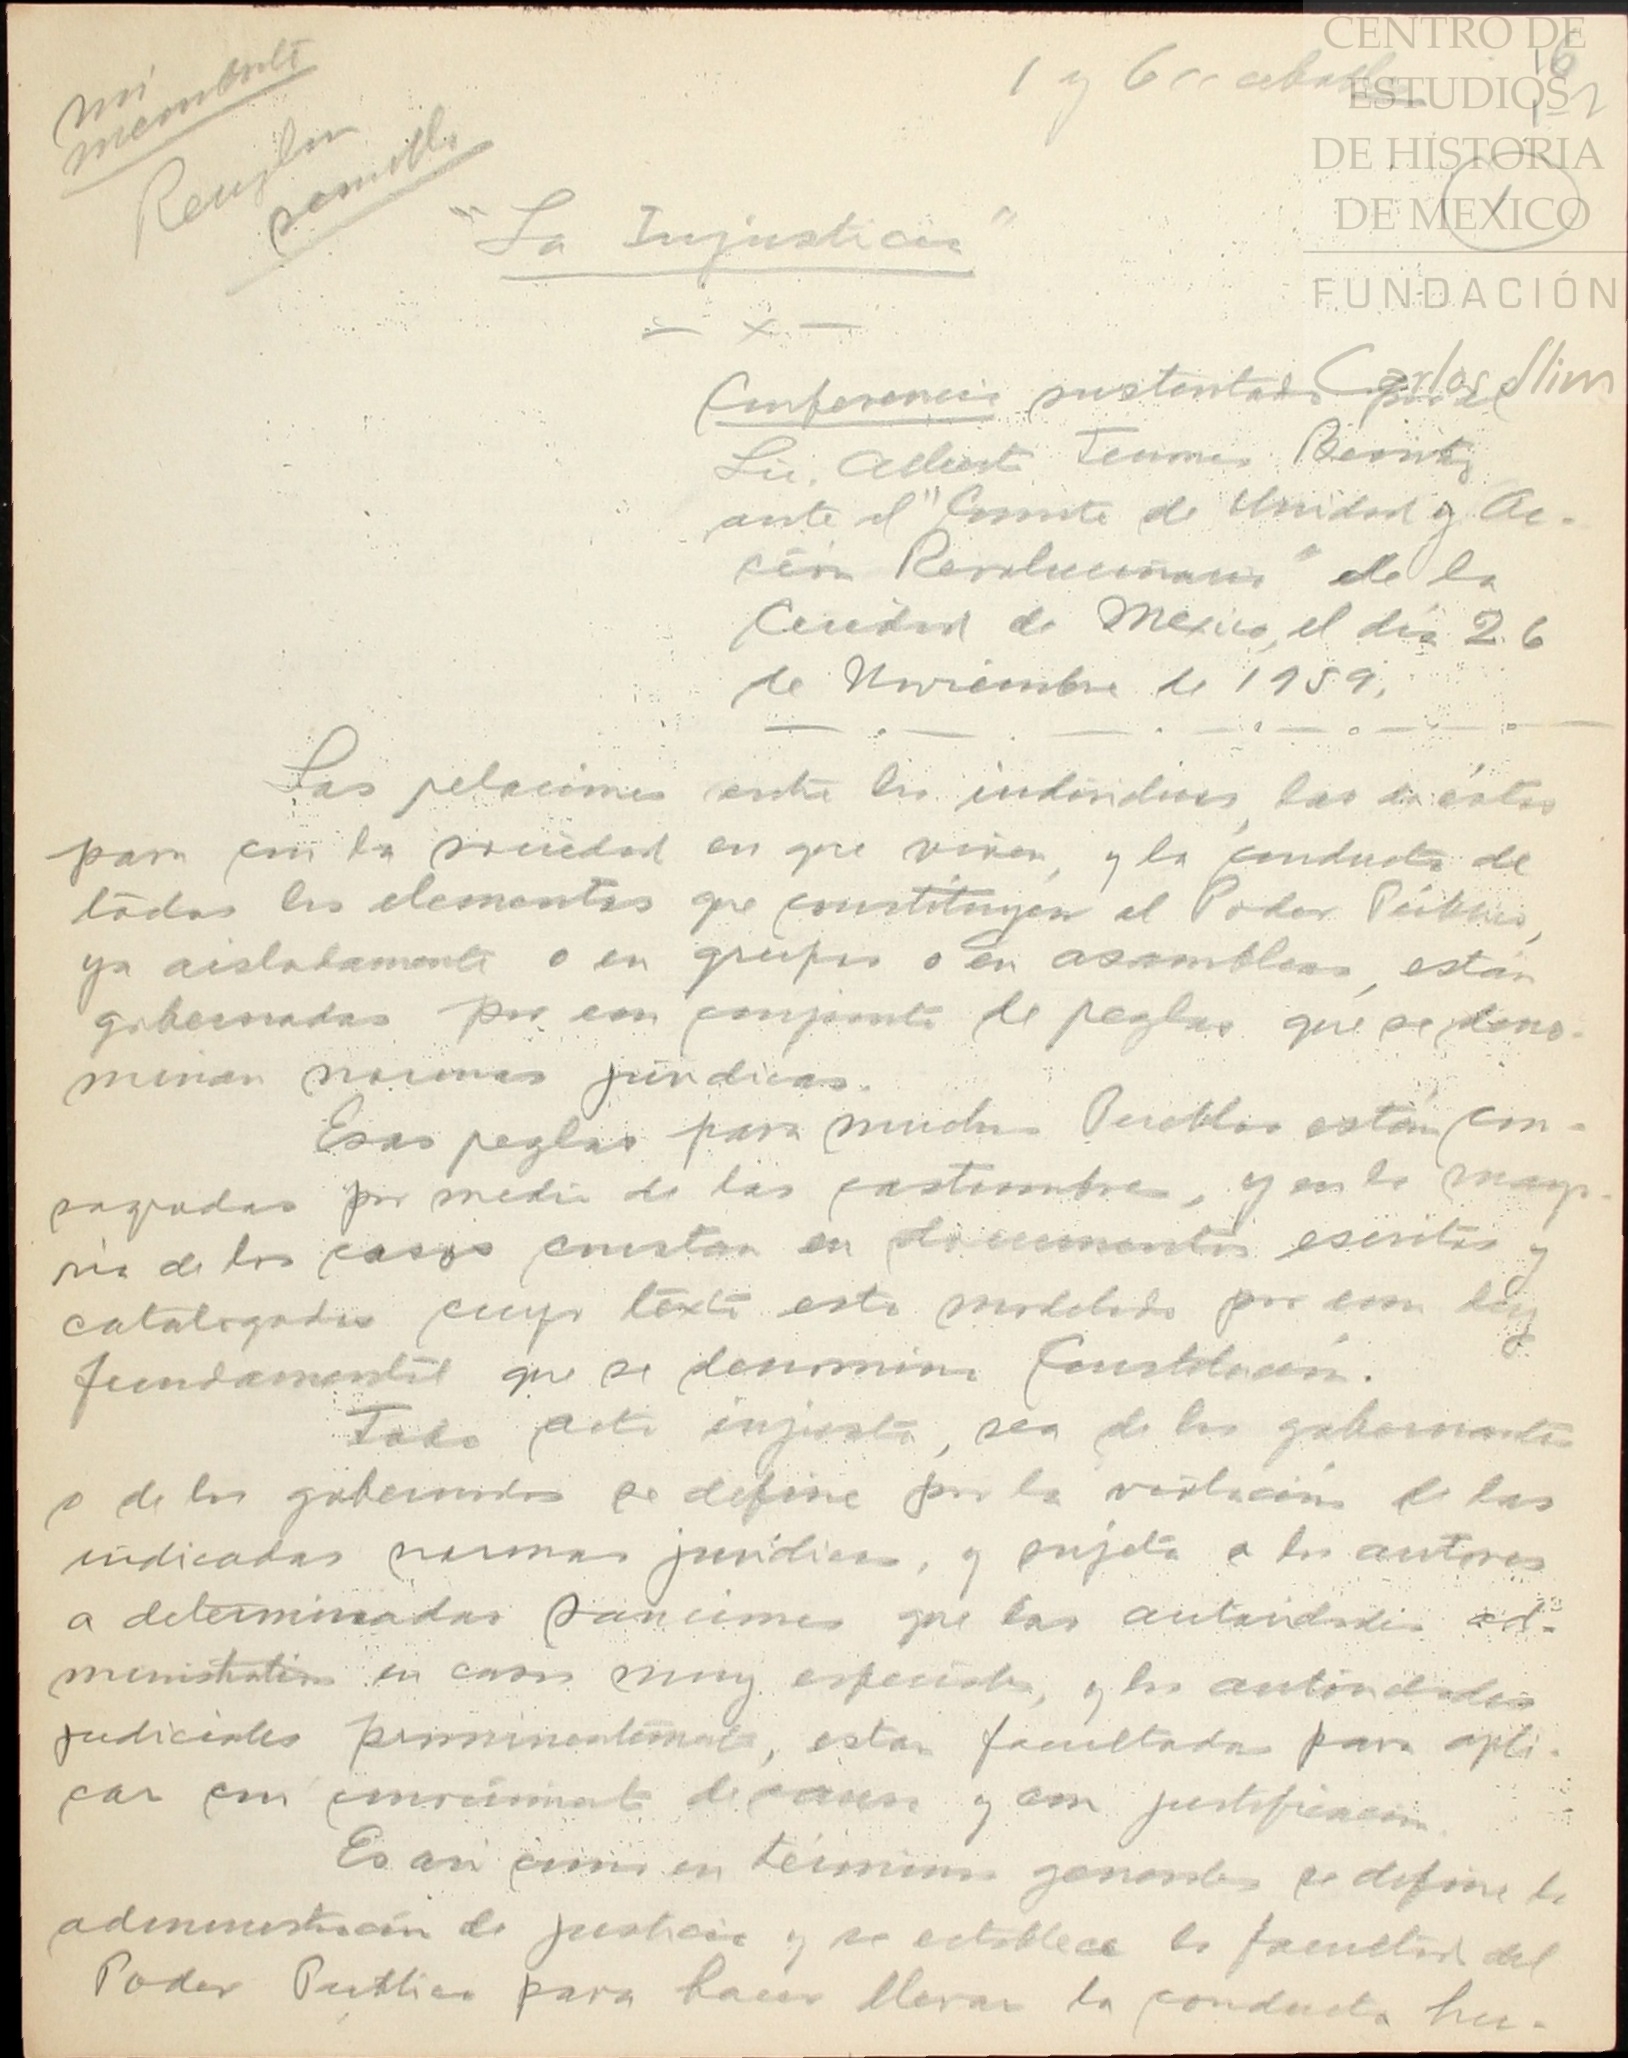 mi
membrete
Renglón
sencillo
1 y 6
CENTRO DE
ESTUDIOS
DE HISTORIA
DE MEXICO
FUNDACIÓN
Carlos Slim
"La Injusticia"
— x —
Conferencia sustentada por el
Lic. Alberto Terrones Benitez
ante el "Comite de Unidad y Ac-
ción Revolucionaria" de la
Ciudad de México, el día 26
de Noviembre de 1959.
Las relaciones entre los individuos, las de éstos
para con la sociedad en que viven, y la conducta de
todos los elementos que constituyen el Poder Público,
ya aisladamente o en grupos o en asambleas, están
gobernadas por un conjunto de reglas que se deno-
minan normas jurídicas.
Esas reglas para muchos Pueblos están con-
sagradas por medio de las costumbres, y en la mayo-
ría de los casos constan en documentos escritos y
catalogados cuyo texto esta modelado por una ley
fundamental que se denomina Constitución.
Todo acto injusto, sea de los gobernantes
o de los gobernados se define por la violación de las
indicadas normas jurídicas, y sujeta a los autores
a determinadas sanciones que las autoridades ad-
ministrativas en casos muy especiales, y las autoridades
judiciales prominentemente, estan facultadas para apli-
car con conocimiento de causa y con justificación.
Es asi como en términos generales se define la
administración de justicia y se establece la facultad del
Poder Publico para hacer llevar la conducta hu-